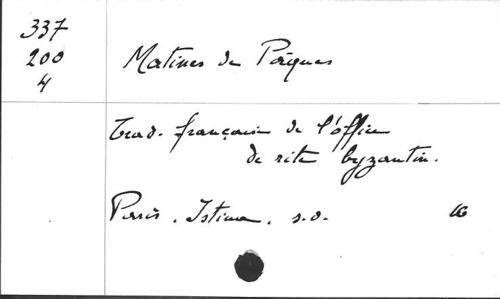 337
200
4
Matines de Pâques
Trad. française de l'office
de rite byzantin.
Paris. Istina. s.d.